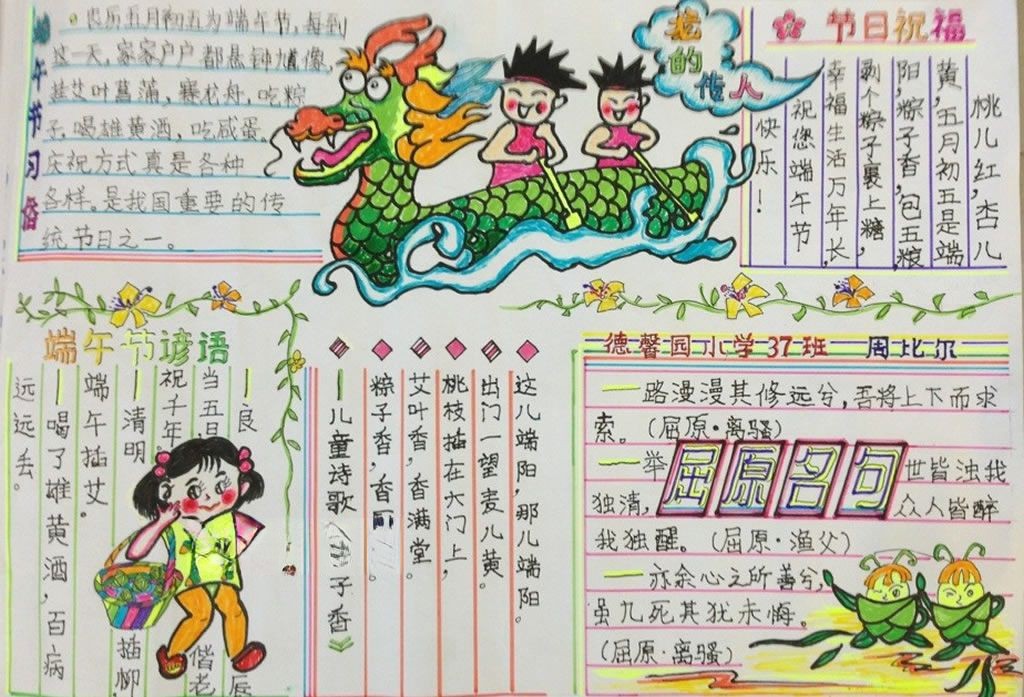 端午节习俗
农历五月初五为端午节，每到
这一天，家家户户都悬钟馗像，
挂艾叶菖蒲，赛龙舟，吃粽
子，喝雄黄酒，吃咸蛋。
庆祝方式真是各种
各样。是我国重要的传
统节日之一。
龙的传人
节日祝福
桃儿红，杏儿
黄，五月初五是端
阳，粽子香，包五粮
剥个粽子裹上糖，
幸福生活万年长，
祝您端午节
快乐！
端午节谚语
一良辰
当五日偕老
祝千年
一清明插柳
端午插艾。
一喝了雄黄酒，百病
远远丢。
这儿端阳，那儿端阳。
出门一望麦儿黄。
桃枝插在大门上，
艾叶香，香满堂。
粽子香，香
一儿童诗歌《子香》
德馨园小学37班 周比尔
屈原名句
一路漫漫其修远兮，吾将上下而求
索。（屈原·离骚）
一举世皆浊我
独清，众人皆醉
我独醒。（屈原·渔父）
一亦余心之所善兮，
虽九死其犹未悔。
（屈原·离骚）